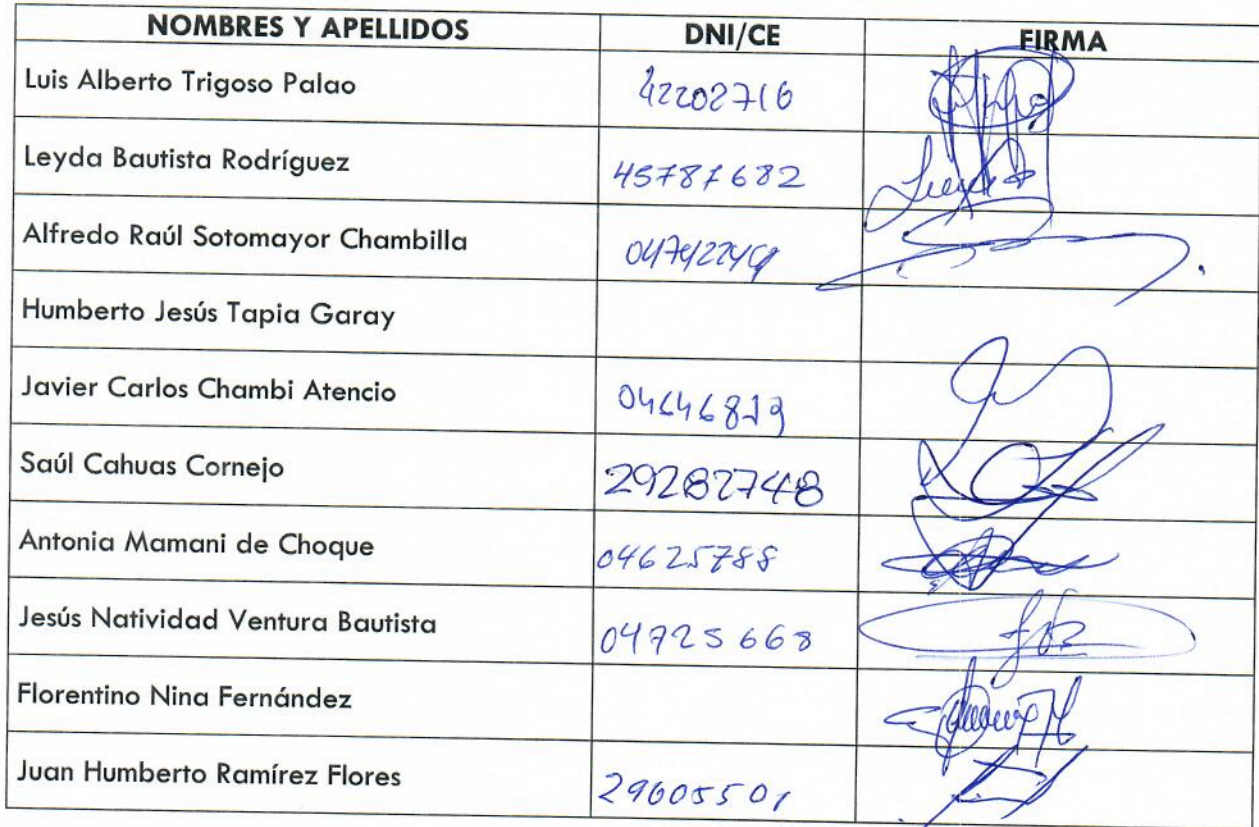 NOMBRES Y APELLIDOS DNI/CE FIRMA
Luis Alberto Trigoso Palao 42202716
Leyda Bautista Rodríguez 45787682
Alfredo Raúl Sotomayor Chambilla
Humberto Jesús Tapia Garay
Javier Carlos Chambi Atencio
Saúl Cahuas Cornejo 29282748
Antonia Mamani de Choque 04625788
Jesús Natividad Ventura Bautista 04725668
Florentino Nina Fernández
Juan Humberto Ramírez Flores 29605501